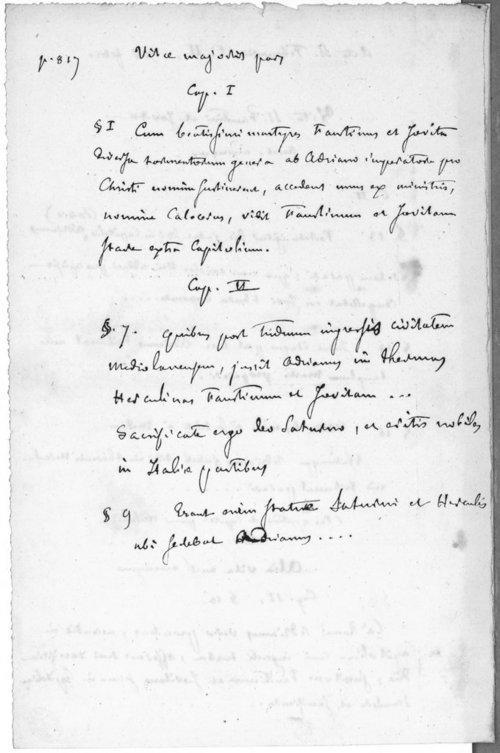 p. 817 Vitae majoris pars
Cap. I
§ I Cum beatissimi martyres Faustinus et Jovita
diversa tormentorum genera ab Adriano imperatore pro
Christi nomine sustinerent, accedens unus ex ministris,
nomine Calocerus, vidit Faustinum et Jovitam
stare extra Capitolium.
Cap. II
§. 7. Quibus post triduum ingressis civitatem
Mediolanensem, jussit Adrianus in thermas
Herculinas Faustinum et Jovitam ...
Sacrificate ergo deo Saturno, et eritis nobiles
in Italiae partibus
§ 9 Erant enim statuae Saturni et Herculis
ubi sedebat Adrianus ....